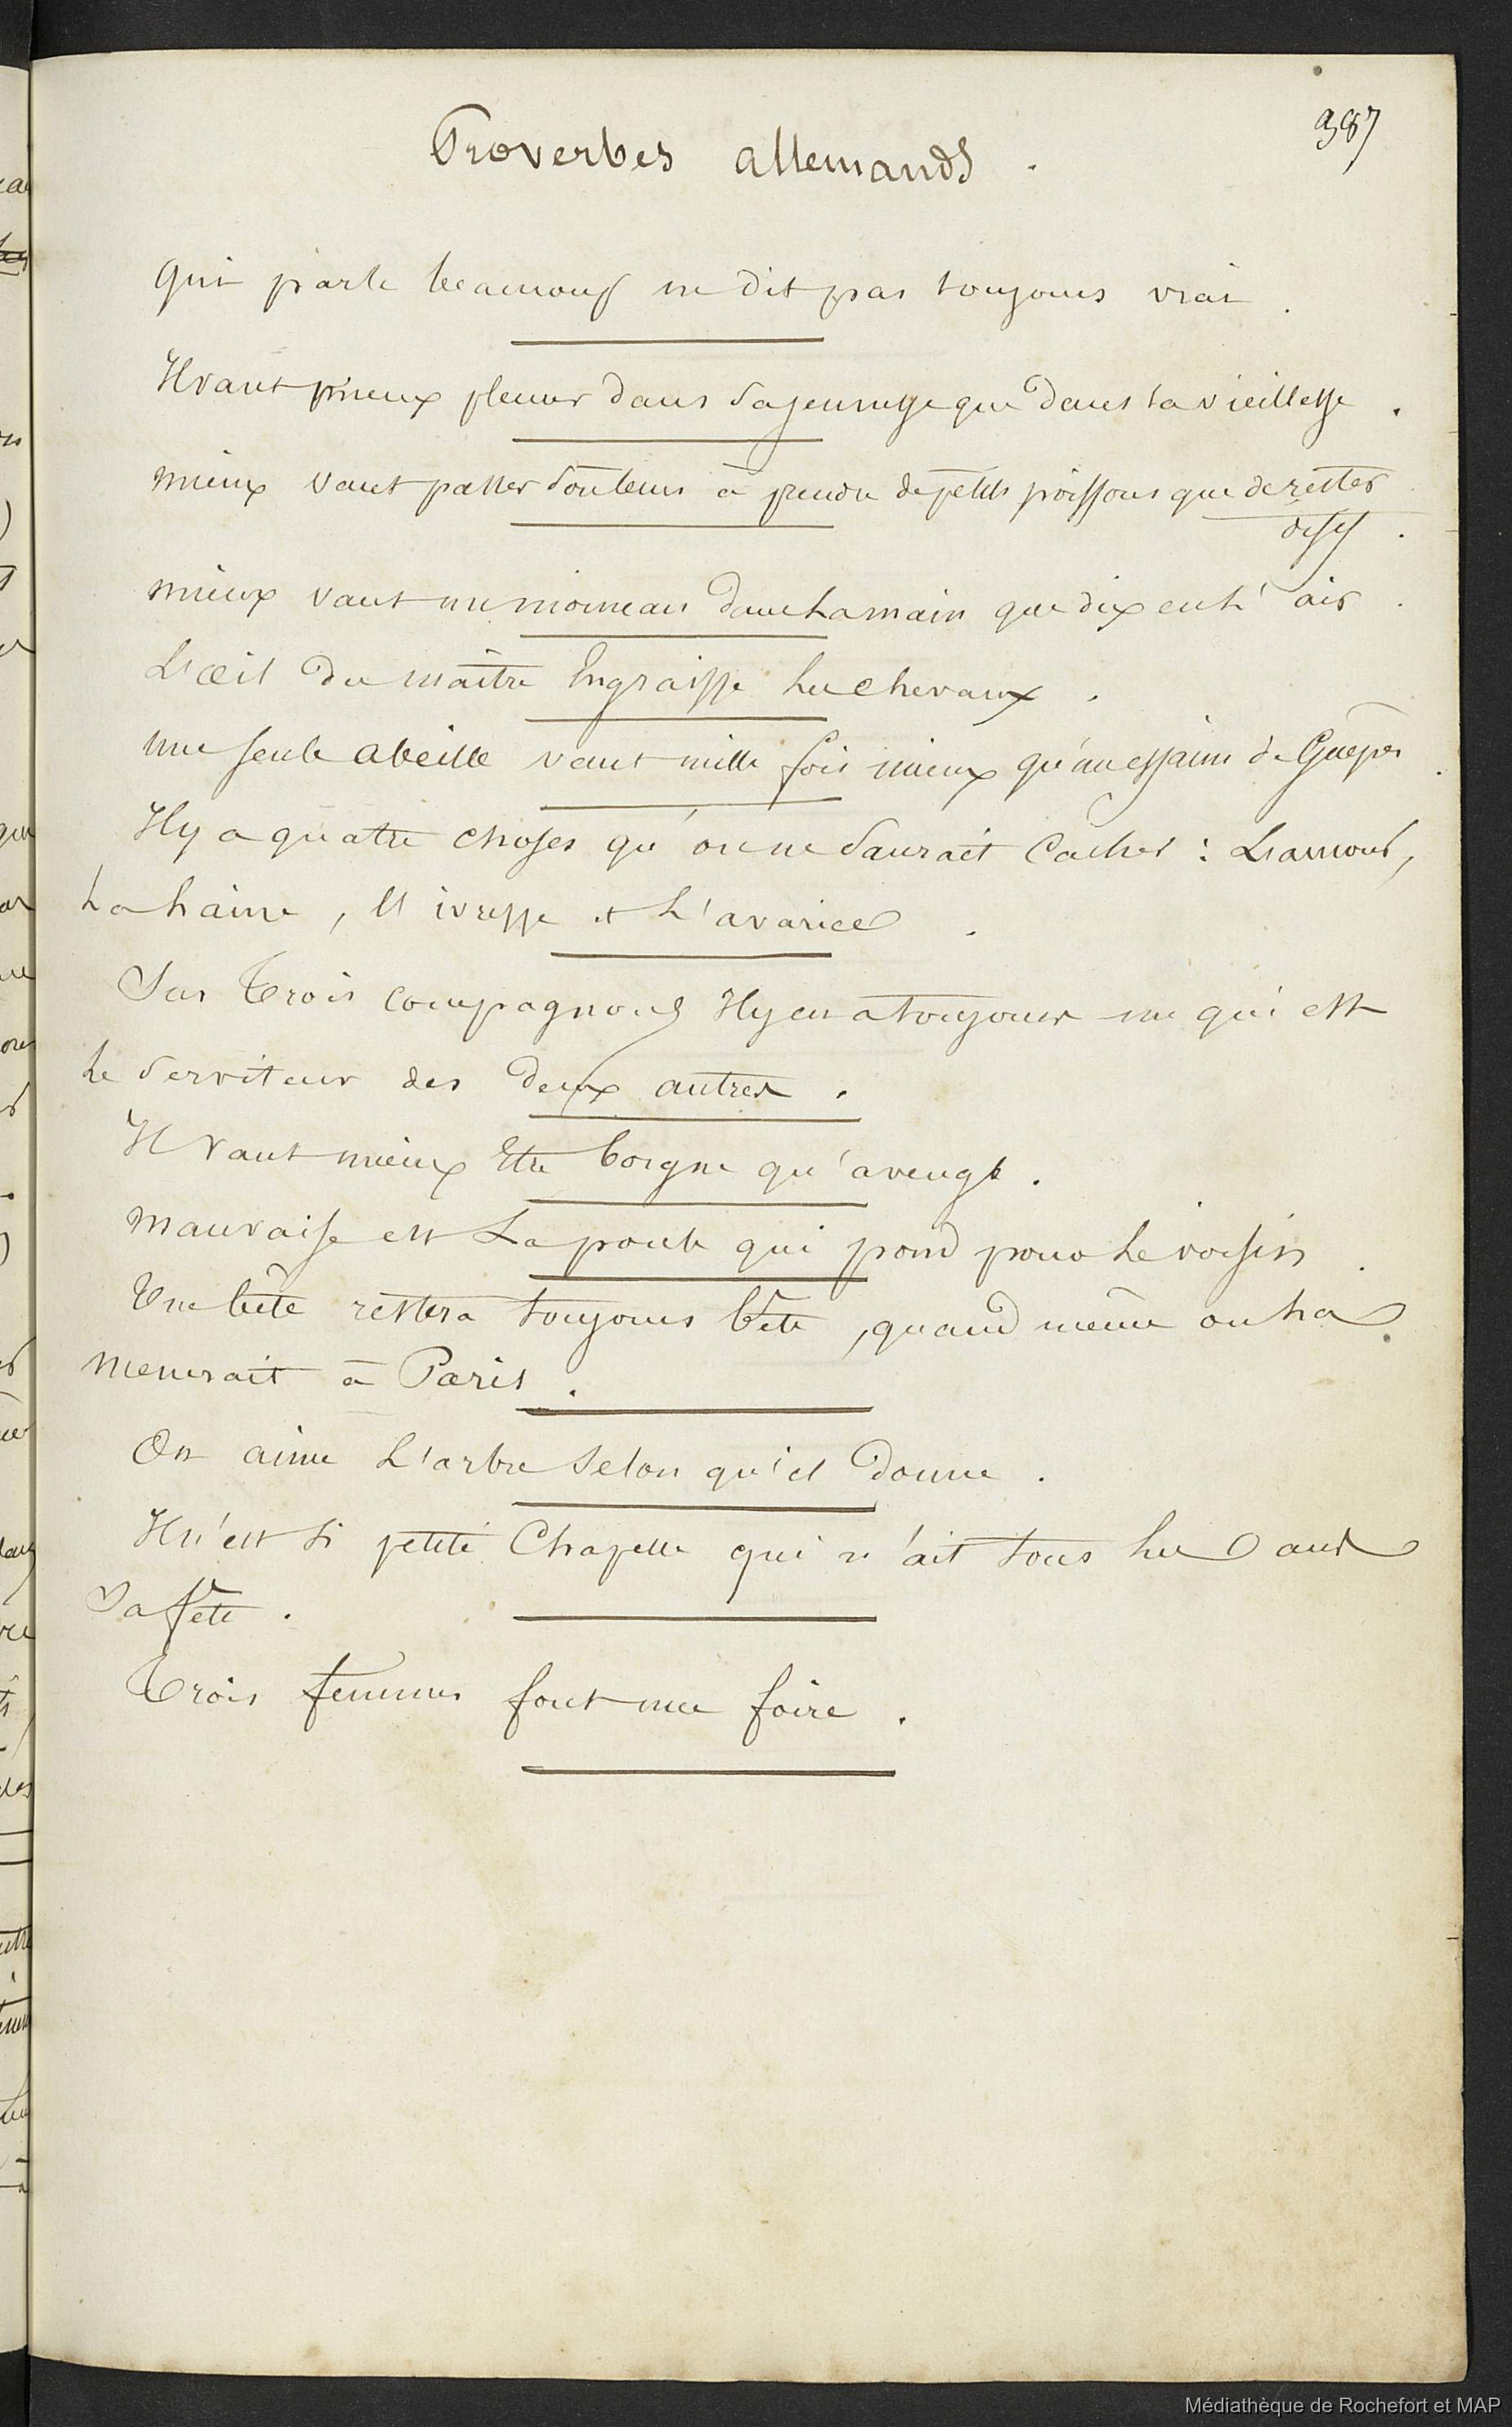 387
Proverbes allemands.
Qui parle beaucoup ne dit pas toujours vrai.
Il vaut mieux pleurer dans sa jeunesse que dans sa vieillesse.
Mieux vaut passer son tems à prendre de petits poissons que de rester
mieux vaut un moineau dans la main que dix en l'air.
L'œil du maître Engraisse les chevaux.
une seule abeille vaut mille fois mieux qu'un essaim de Guêpes.
Il y a quatre choses qu'on ne saurait cacher : L'amour,
la haine, l'ivresse et l'avarice.
Sur Trois compagnons Il y en a toujours un qui est
le serviteur des deux autres.
Il vaut mieux Etre borgne qu'aveugle.
mauvaise est La poule qui pond pour le voisin.
Une bête restera toujours bête, quand même on la
menerait à Paris.
On aime L'arbre selon qu'il donne.
Il n'est si petite Chapelle qui n'ait tous les ans
Sa fête.
Trois femmes font une foire.
Médiathèque de Rochefort et MAP